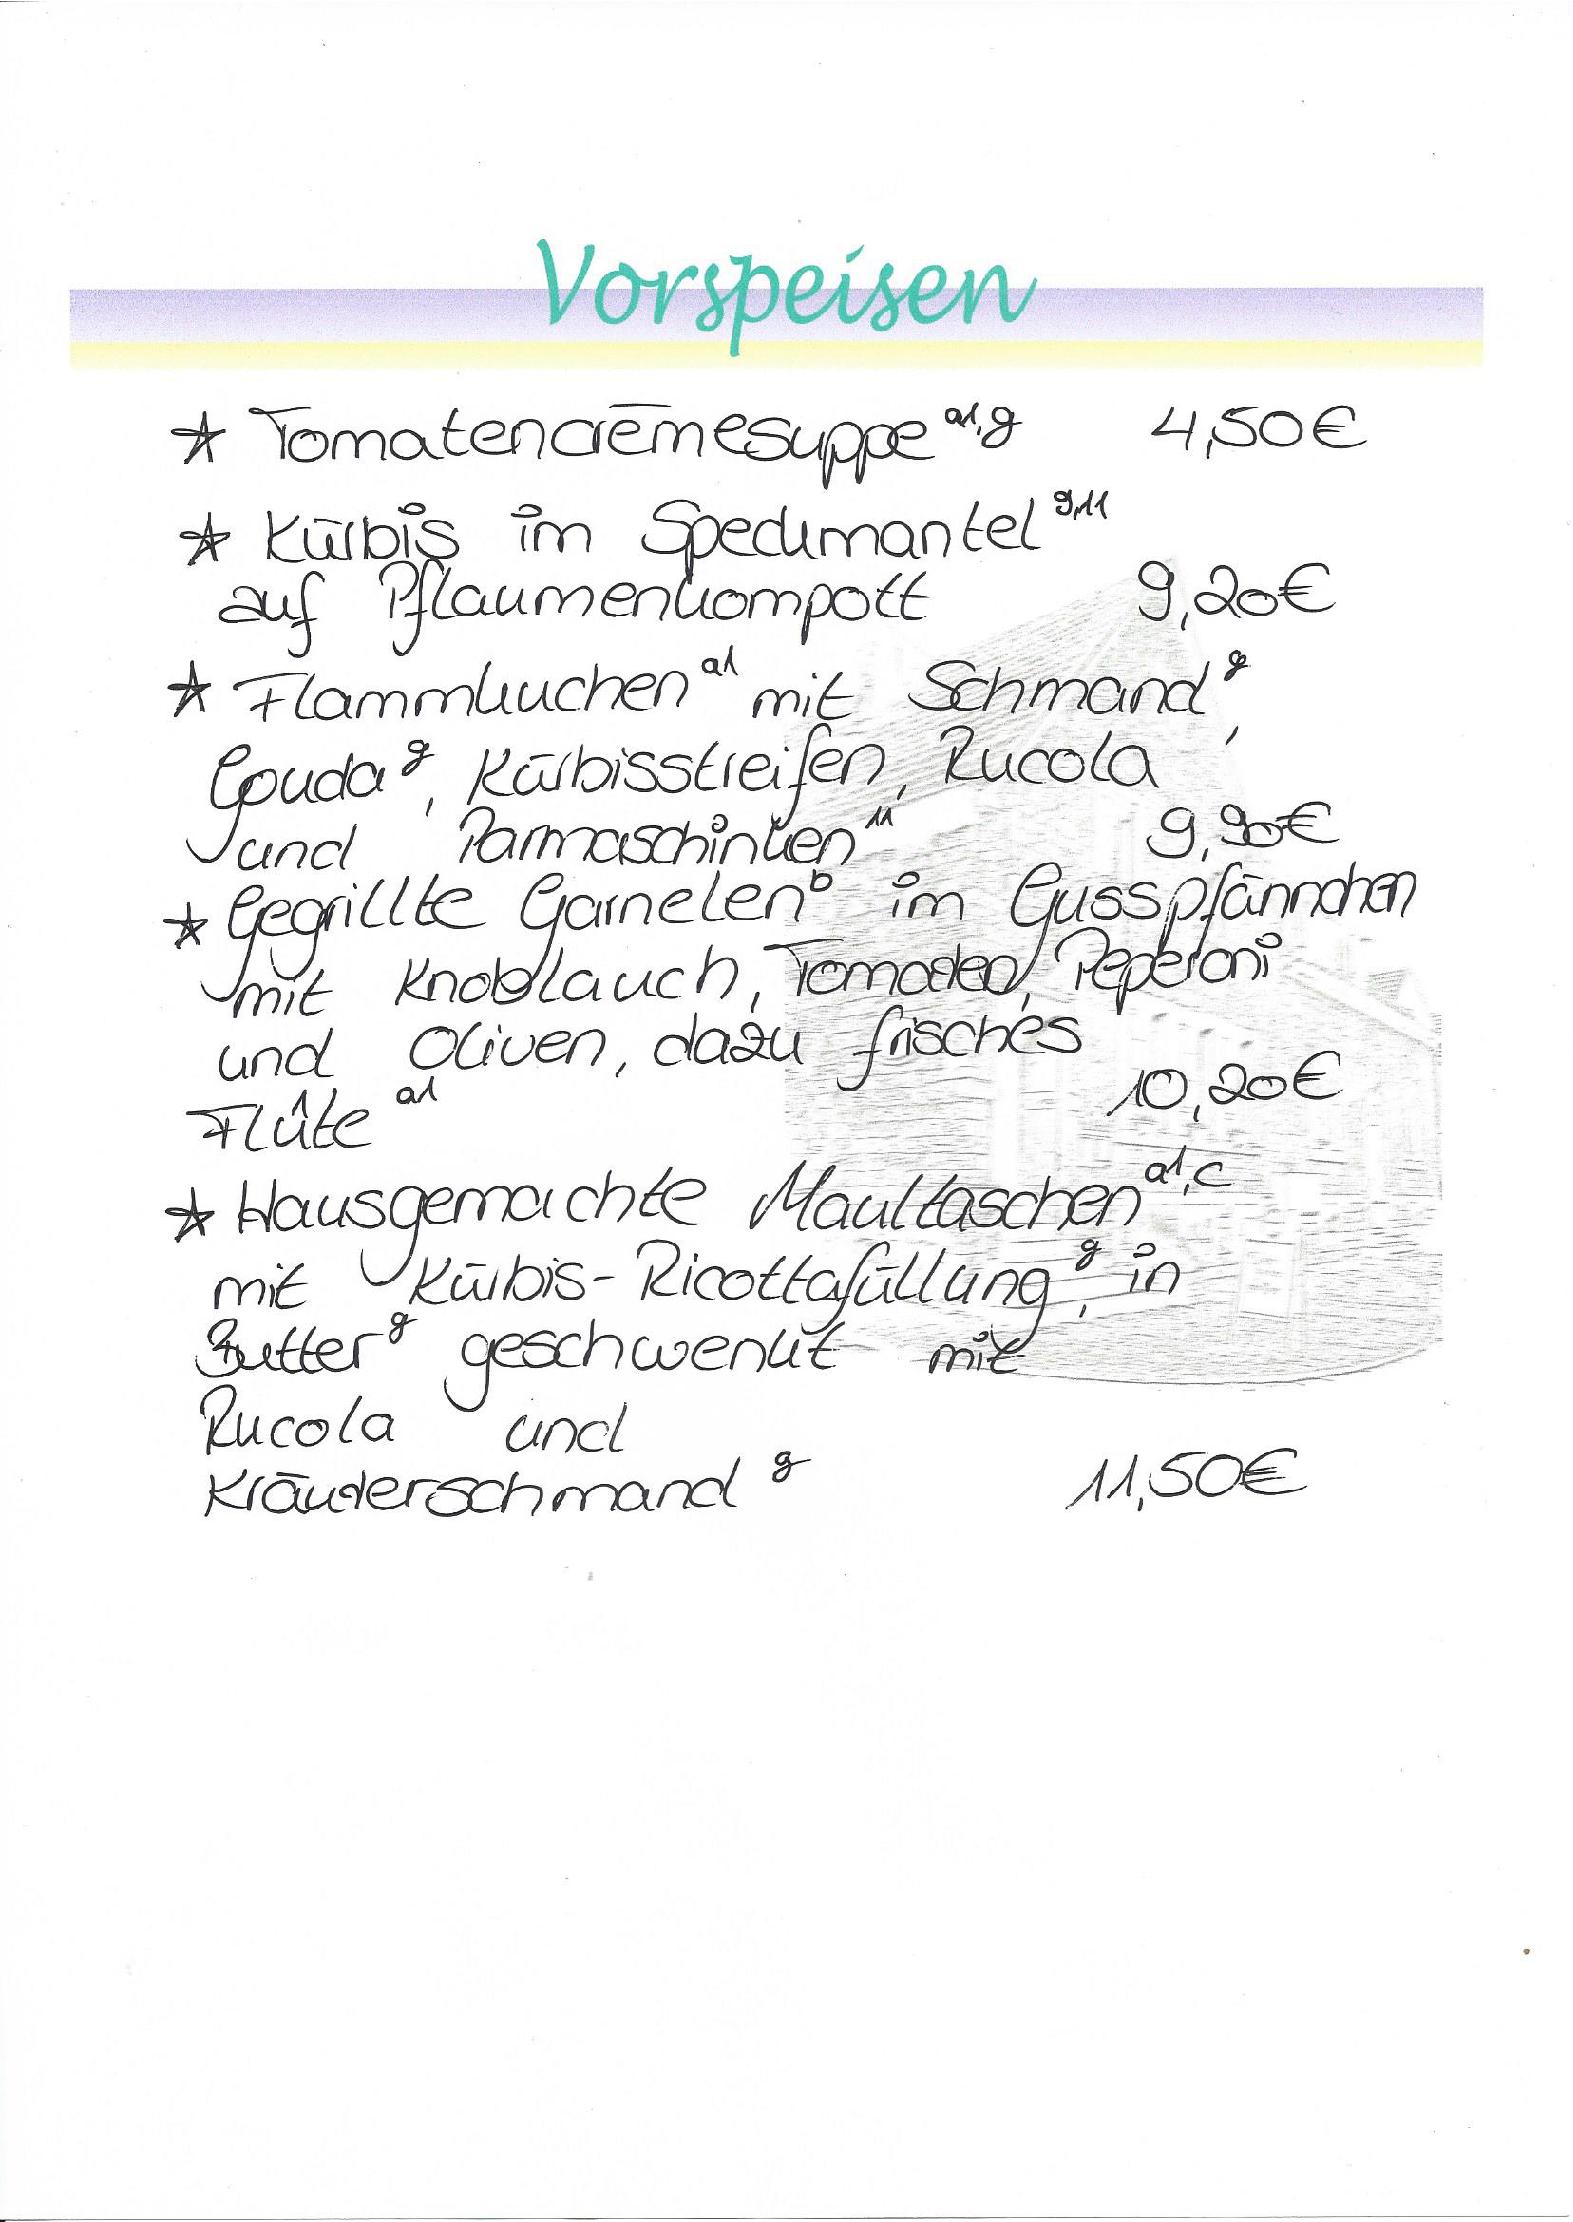 Vorspeisen
☆ Tomatencrèmesuppe a1,g 4,50€
☆ Kürbis im Speckmantel 9,11
auf Pflaumenkompott 9,20€
☆ Flammkuchen a1 mit Schmand g,
Gouda g, Kürbisstreifen, Rucola
und Parmaschinken 11 9,90€
☆ Gegrillte Garnelen b im Gusspfännchen
mit Knoblauch, Tomaten, Peperoni
und Oliven, dazu frisches
Flûte a1 10,20€
☆ Hausgemachte Maultaschen a1,c
mit Kürbis-Ricottafüllung g, in
Butter g geschwenkt mit
Rucola und
Kräuterschmand g 11,50€